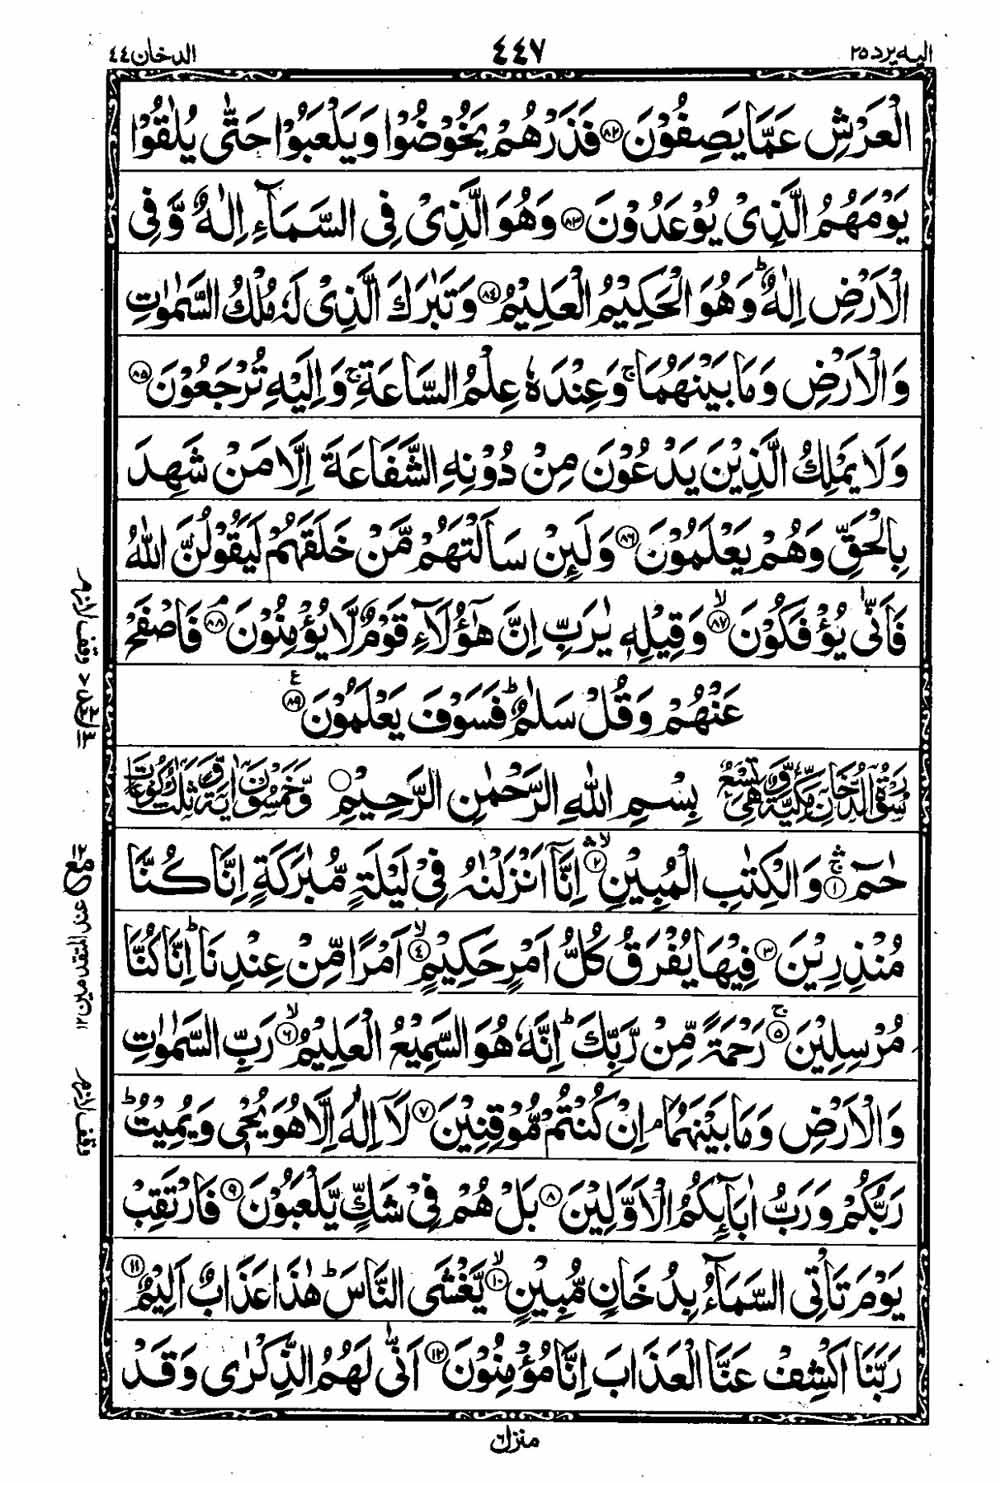 اليه يرد ٢٥
٤٤٧
الدخان ٤٤
الْعَرْشِ عَمَّا يَصِفُوْنَ ﴿٨٢﴾ فَذَرْهُمْ يَخُوْضُوْا وَيَلْعَبُوْا حَتّٰى يُلٰقُوْا
يَوْمَهُمُ الَّذِىْ يُوْعَدُوْنَ ﴿٨٣﴾ وَهُوَ الَّذِىْ فِى السَّمَآءِ اِلٰهٌ وَّفِى
الْاَرْضِ اِلٰهٌ ؕ وَهُوَ الْحَكِيْمُ الْعَلِيْمُ ﴿٨٤﴾ وَتَبٰرَكَ الَّذِىْ لَهٗ مُلْكُ السَّمٰوٰتِ
وَالْاَرْضِ وَمَا بَيْنَهُمَا ۚ وَعِنْدَهٗ عِلْمُ السَّاعَةِ ۚ وَاِلَيْهِ تُرْجَعُوْنَ ﴿٨٥﴾
وَلَا يَمْلِكُ الَّذِيْنَ يَدْعُوْنَ مِنْ دُوْنِهِ الشَّفَاعَةَ اِلَّا مَنْ شَهِدَ
بِالْحَقِّ وَهُمْ يَعْلَمُوْنَ ﴿٨٦﴾ وَلَئِنْ سَاَلْتَهُمْ مَّنْ خَلَقَهُمْ لَيَقُوْلُنَّ اللّٰهُ
فَاَنّٰى يُؤْفَكُوْنَ ۙ﴿٨٧﴾ وَقِيْلِهٖ يٰرَبِّ اِنَّ هٰٓؤُلَآءِ قَوْمٌ لَّا يُؤْمِنُوْنَ ۘ﴿٨٨﴾ فَاصْفَحْ
عَنْهُمْ وَقُلْ سَلٰمٌ ؕ فَسَوْفَ يَعْلَمُوْنَ ﴿٨٩﴾ ع
سُوْرَةُ الدُّخَانِ مَكِّيَّةٌ وَّهِىَ تِسْعٌ بِسْمِ اللّٰهِ الرَّحْمٰنِ الرَّحِيْمِ وَّخَمْسُوْنَ اٰيَةً وَّثَلٰثُ رُكُوْعَاتٍ
حٰمٓ ۚۛ﴿١﴾ وَالْكِتٰبِ الْمُبِيْنِ ۙۛ﴿٢﴾ اِنَّآ اَنْزَلْنٰهُ فِىْ لَيْلَةٍ مُّبٰرَكَةٍ اِنَّا كُنَّا
مُنْذِرِيْنَ ﴿٣﴾ فِيْهَا يُفْرَقُ كُلُّ اَمْرٍ حَكِيْمٍ ۙ﴿٤﴾ اَمْرًا مِّنْ عِنْدِنَا ؕ اِنَّا كُنَّا
مُرْسِلِيْنَ ۚ﴿٥﴾ رَحْمَةً مِّنْ رَّبِّكَ ؕ اِنَّهٗ هُوَ السَّمِيْعُ الْعَلِيْمُ ۙ﴿٦﴾ رَبِّ السَّمٰوٰتِ
وَالْاَرْضِ وَمَا بَيْنَهُمَا ۘ اِنْ كُنْتُمْ مُّوْقِنِيْنَ ﴿٧﴾ لَآ اِلٰهَ اِلَّا هُوَ يُحْىٖ وَيُمِيْتُ ؕ
رَبُّكُمْ وَرَبُّ اٰبَآئِكُمُ الْاَوَّلِيْنَ ﴿٨﴾ بَلْ هُمْ فِىْ شَكٍّ يَّلْعَبُوْنَ ﴿٩﴾ فَارْتَقِبْ
يَوْمَ تَاْتِى السَّمَآءُ بِدُخَانٍ مُّبِيْنٍ ۙ﴿١٠﴾ يَّغْشَى النَّاسَ ؕ هٰذَا عَذَابٌ اَلِيْمٌ ﴿١١﴾
رَبَّنَا اكْشِفْ عَنَّا الْعَذَابَ اِنَّا مُؤْمِنُوْنَ ﴿١٢﴾ اَنّٰى لَهُمُ الذِّكْرٰى وَقَدْ
وقف لازم
عند المتقدمين ١٢
وقف لازم
منزل ٦